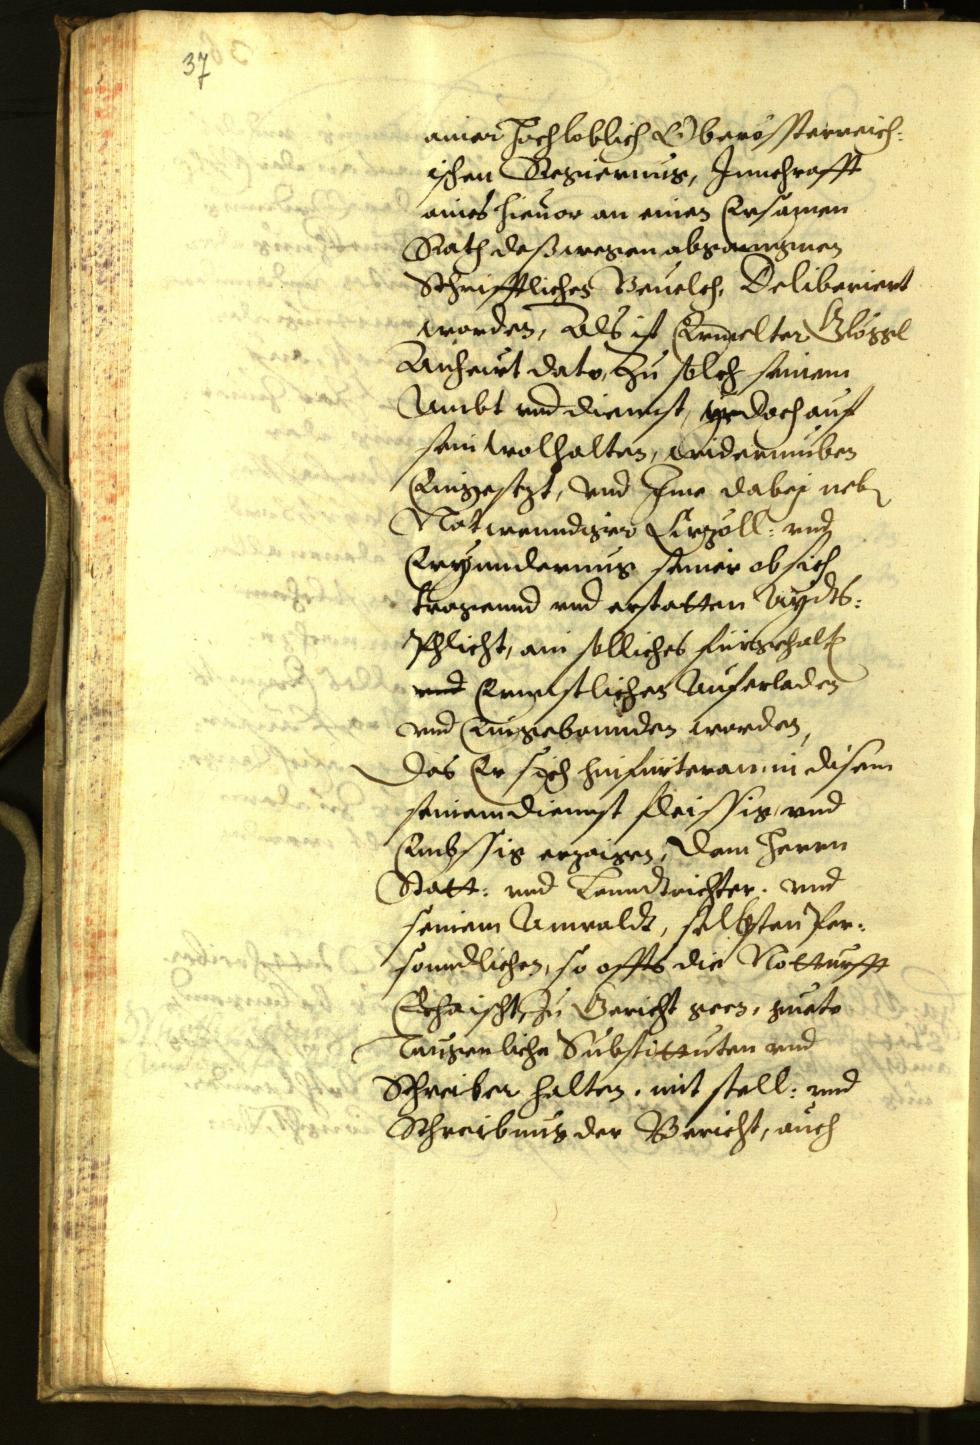 37
ainer Hochloblich Oberössterreich:
ischen Regierung, Innchrafft
aines hieuor an einen Ersamen
Rath deßwegen abganngnen
Schrifftlichen Beuelch, Deliberiert
worden, Als ist Ermelter Glöggl
Anheut dato, Zu solch seinem
Ambt vnd diennst, yedoch auf
sein wolhalten, widerumben
Eingesezt, vnd Ime dabej neb
Notwenndiger Erzöll: vnd
Erynnderung seiner ob sich
tragennd vnd erstatten Aydts:
Phlicht, ain solliches fürgehalt
vnd Ernnstlichen Auferladen
vnd Eingebounden worden,
Das Er sich hinfürteran, in disem
seinem diennst fleissig, vnd
Embssig erzaigen, Dem Herrn
Statt: vnd Lanndtrichter. vnd
seinem Anwaldt, selbsten Per:
sonndlichen, so offts die Notturfft
Erhaischt, Zu Gericht geen, guete
Taugenliche Substittuten vnd
Schreiber halten, mit stell: vnd
Schreibung der Bericht, auch